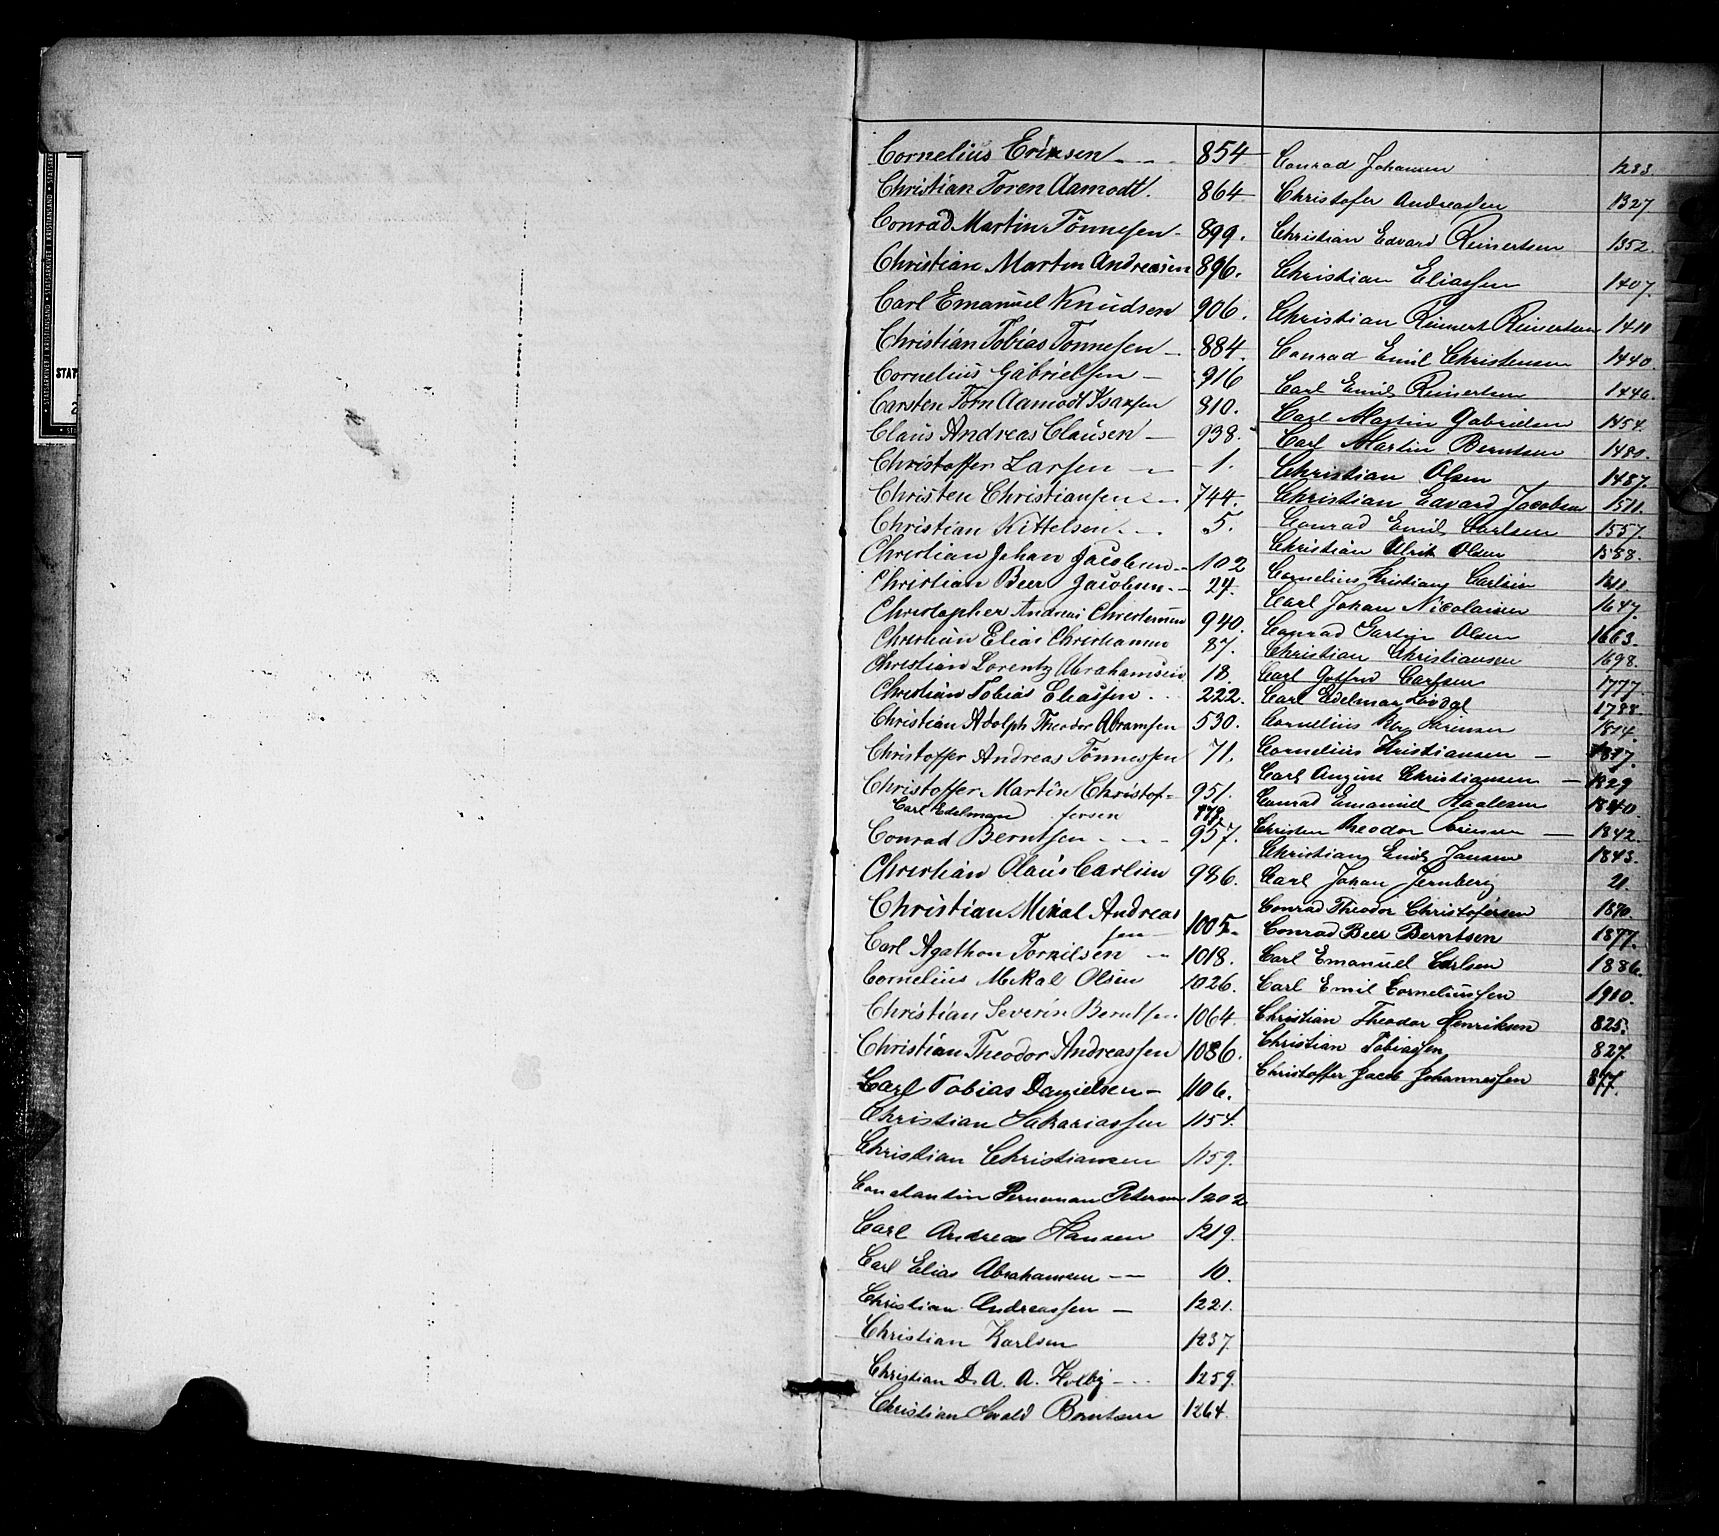 Cornelius Eriksen 854
Christian Toren Aamodt. 864
Conrad Martin Tönnesen 899.
Christian Martin Andreasen 896.
Carl Emanuel Knudsen 906.
Christian Tobias Tonnesen 884.
Cornelius Gabrielsen 916
Carsten Torn Aamodt Isaksen 810.
Claus Andreas Clausen 938.
Christoffer Larsen 1.
Christen Christiansen 744.
Christian Kittelsen 5.
Christian Johan Jacobsen 102
Christian Beer Jacobsen 24.
Christopher Andreas Christensen 940.
Christian Elias Christiansen 87.
Christian Lorentz Abrahamsen 18.
Christian Tobias Eliassen 222.
Christian Adolph Theodor Abramsen 530.
Christoffer Andreas Tönnessen 71.
Christoffer Martin Christof- 951.
Carl Edelman fersen
Conrad Berntsen 957.
Christian Olaus Carlsen 986.
Christian Mikal Andreas
sen 1005
Carl Agathon Tornilsen 1018.
Cornelius Mikal Olsen 1026.
Christian Severin Berntsen 1064.
Christian Theodor Andreassen 1086.
Carl Tobias Danielsen 1106.
Christian Sakariassen 1154.
Christian Christiansen 1159.
Constantin Petersen 1202
Carl Andreas Hansen 1219.
Carl Elias Abrahamsen 10.
Christian Andreassen 1221.
Christian Karlsen 1237.
Christian D. A. A. Holby 1259.
Christian Berntsen 1264.
Conrad Johansen 1283.
Christofer Andreassen 1327
Christian Edvard Reinertsen 1352.
Christian Eliassen 1407.
Christian Reinert Reinertsen 1410
Conrad Emil Christensen 1440.
Carl Emil Reinertsen 1446.
Carl Martin Gabrielsen 1454.
Carl Martin Berntsen 1480.
Christian Olsen 1487.
Christian Edvard Jacobsen 1511.
Conrad Emil Carlsen 1557.
Christian Ulrik Olsen 1588.
Cornelius Kristian Carlsen
Carl Johan Nicolaisen 1647.
Conrad Olsen 1663.
Christian Christiansen 1698.
Carl Gotfred Carlsen 1777.
Carl Edelmar Lövdal 1788.
Cornelius 1814.
Cornelius Kristiansen 1817
Carl August Christiansen 1829
Conrad Emanuel Haalesen 1840.
Christen Theodor 1842.
Christian Emil Jansen 1843.
Carl Johan Jernberg 21.
Conrad Theodor Christofersen 1870.
Conrad Beer Berntsen 1877.
Carl Emanuel Carlsen 1886.
Carl Emil Corneliussen 1910.
Christian Theodor Henriksen 825.
Christian Tobiassen 827.
Christoffer Jacob Johannessen 877.